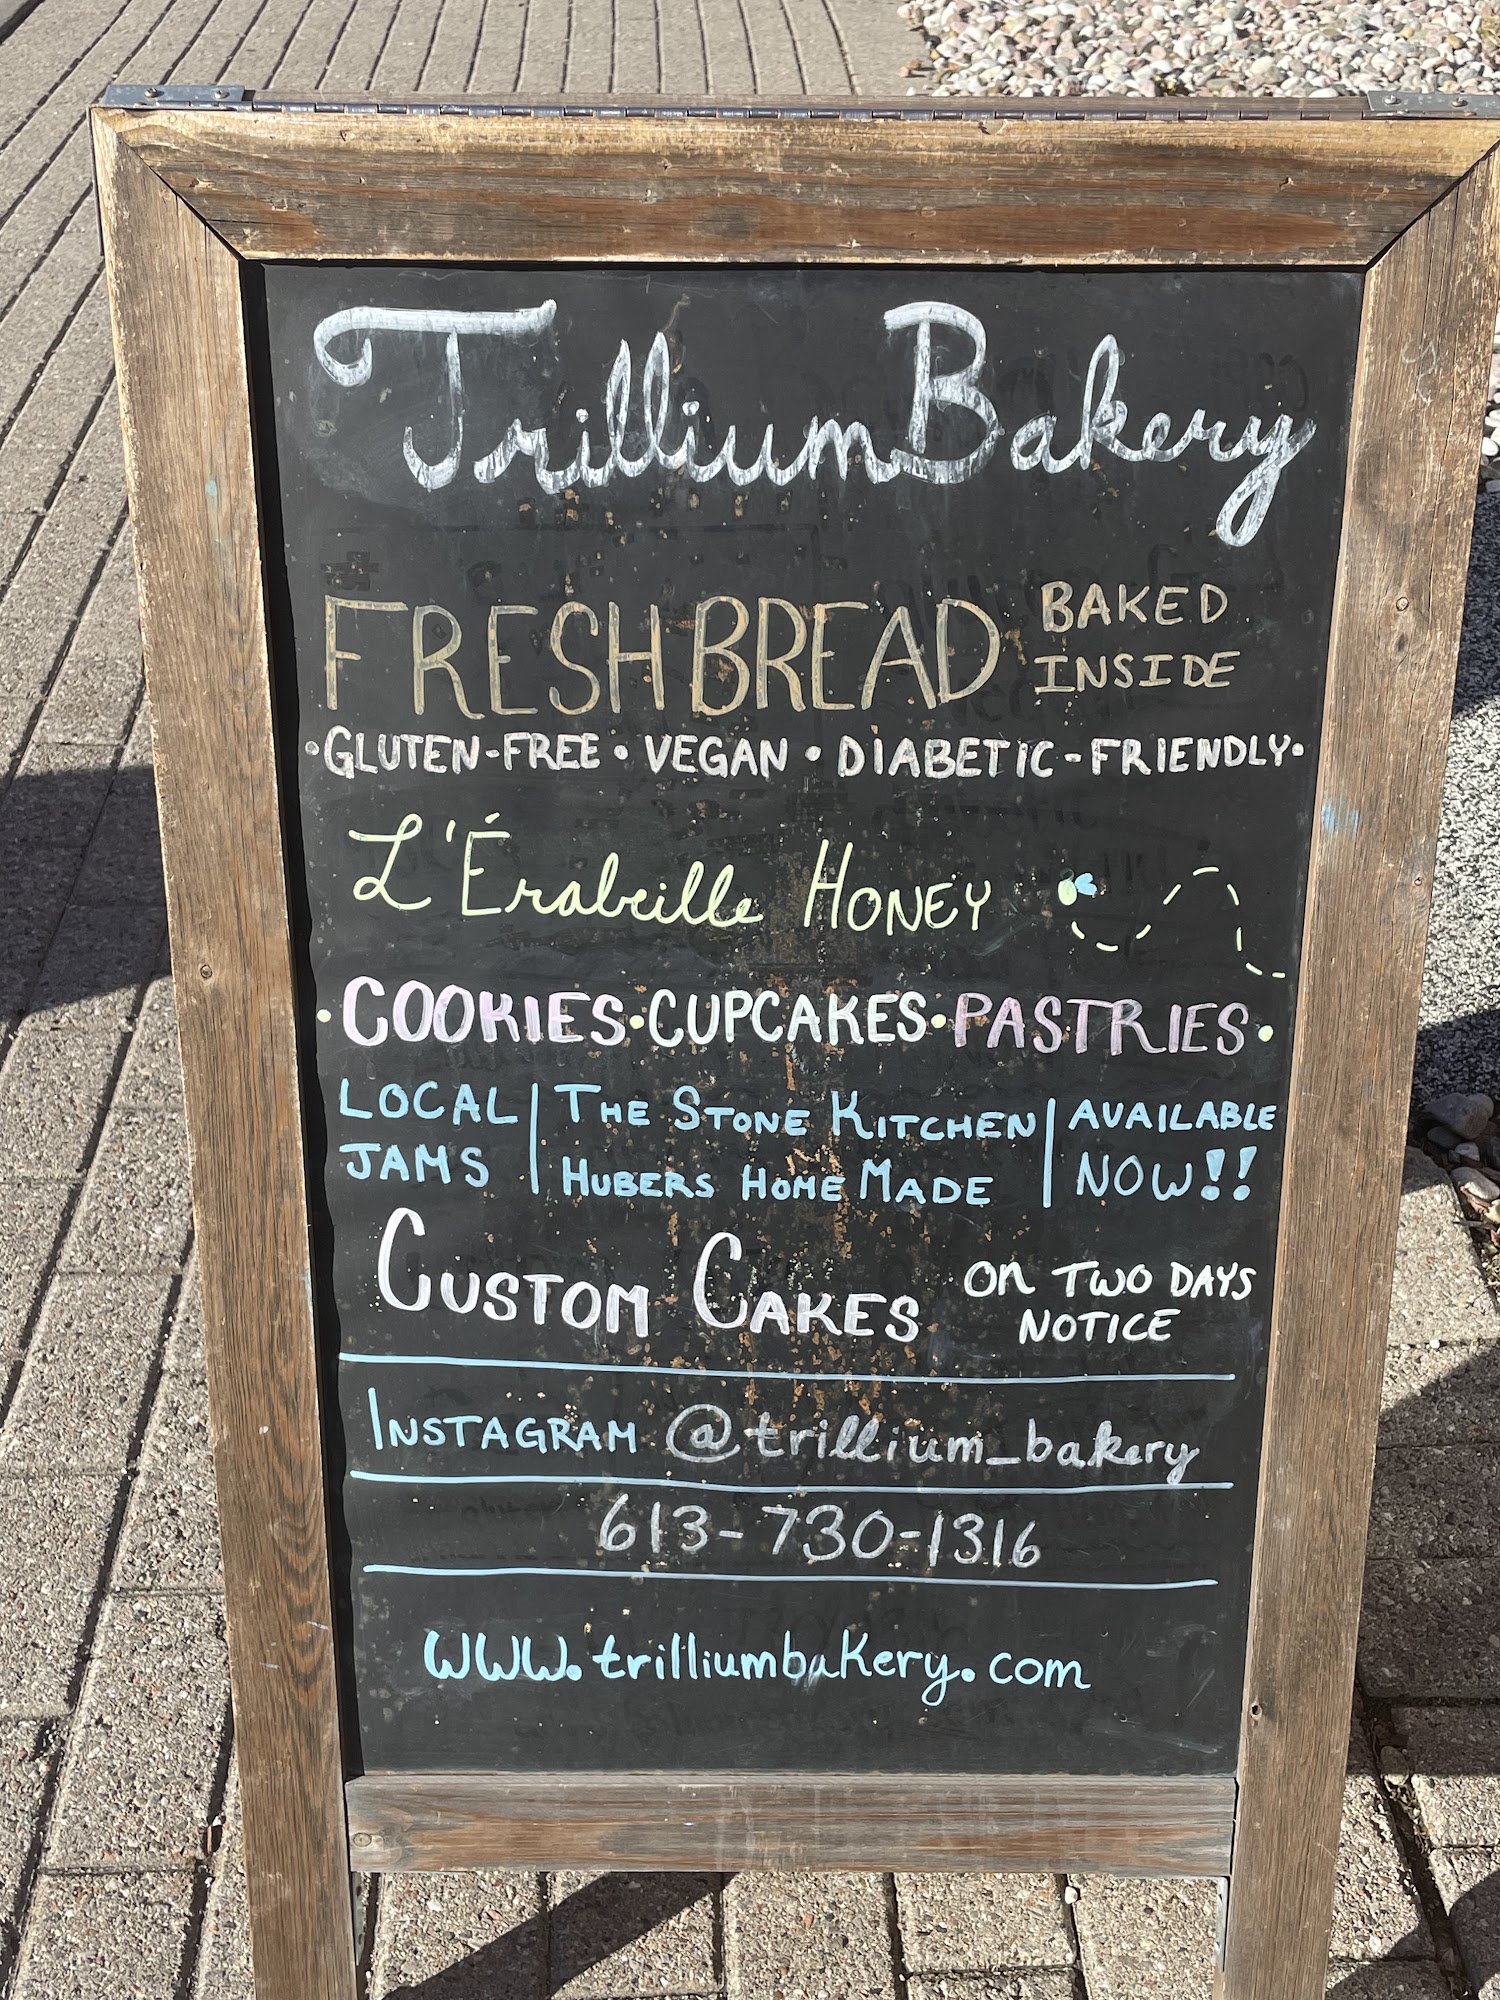 Trillium Bakery
FRESH BREAD BAKED INSIDE
•GLUTEN-FREE • VEGAN • DIABETIC-FRIENDLY•
L'Érabeille HONEY
•COOKIES•CUPCAKES•PASTRIES•
LOCAL JAMS | THE STONE KITCHEN HUBERS HOME MADE | AVAILABLE NOW!!
CUSTOM CAKES ON TWO DAYS NOTICE
INSTAGRAM @trillium_bakery
613-730-1316
www.trilliumbakery.com